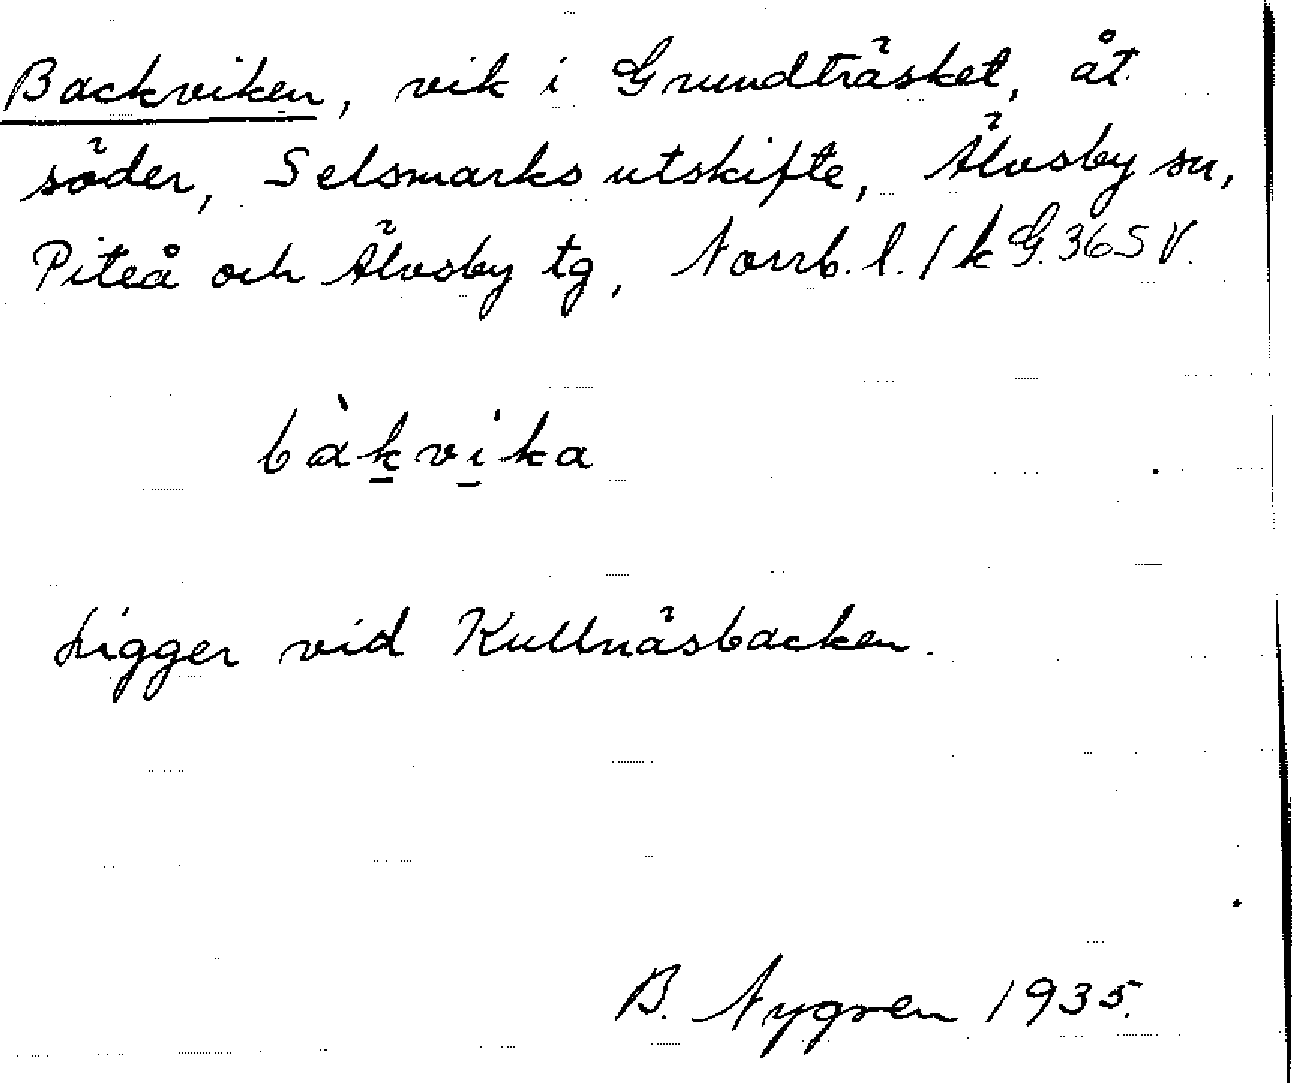 Backviken, vik i Grundträsket, åt
söder, Selsmarks utskifte, Älvsby sn,
Piteå och Älvsby tg, Norrb. l. / k G. 36 S V.
bàkvika
Ligger vid Kullnäsbacken.
B. Nygren 1935.